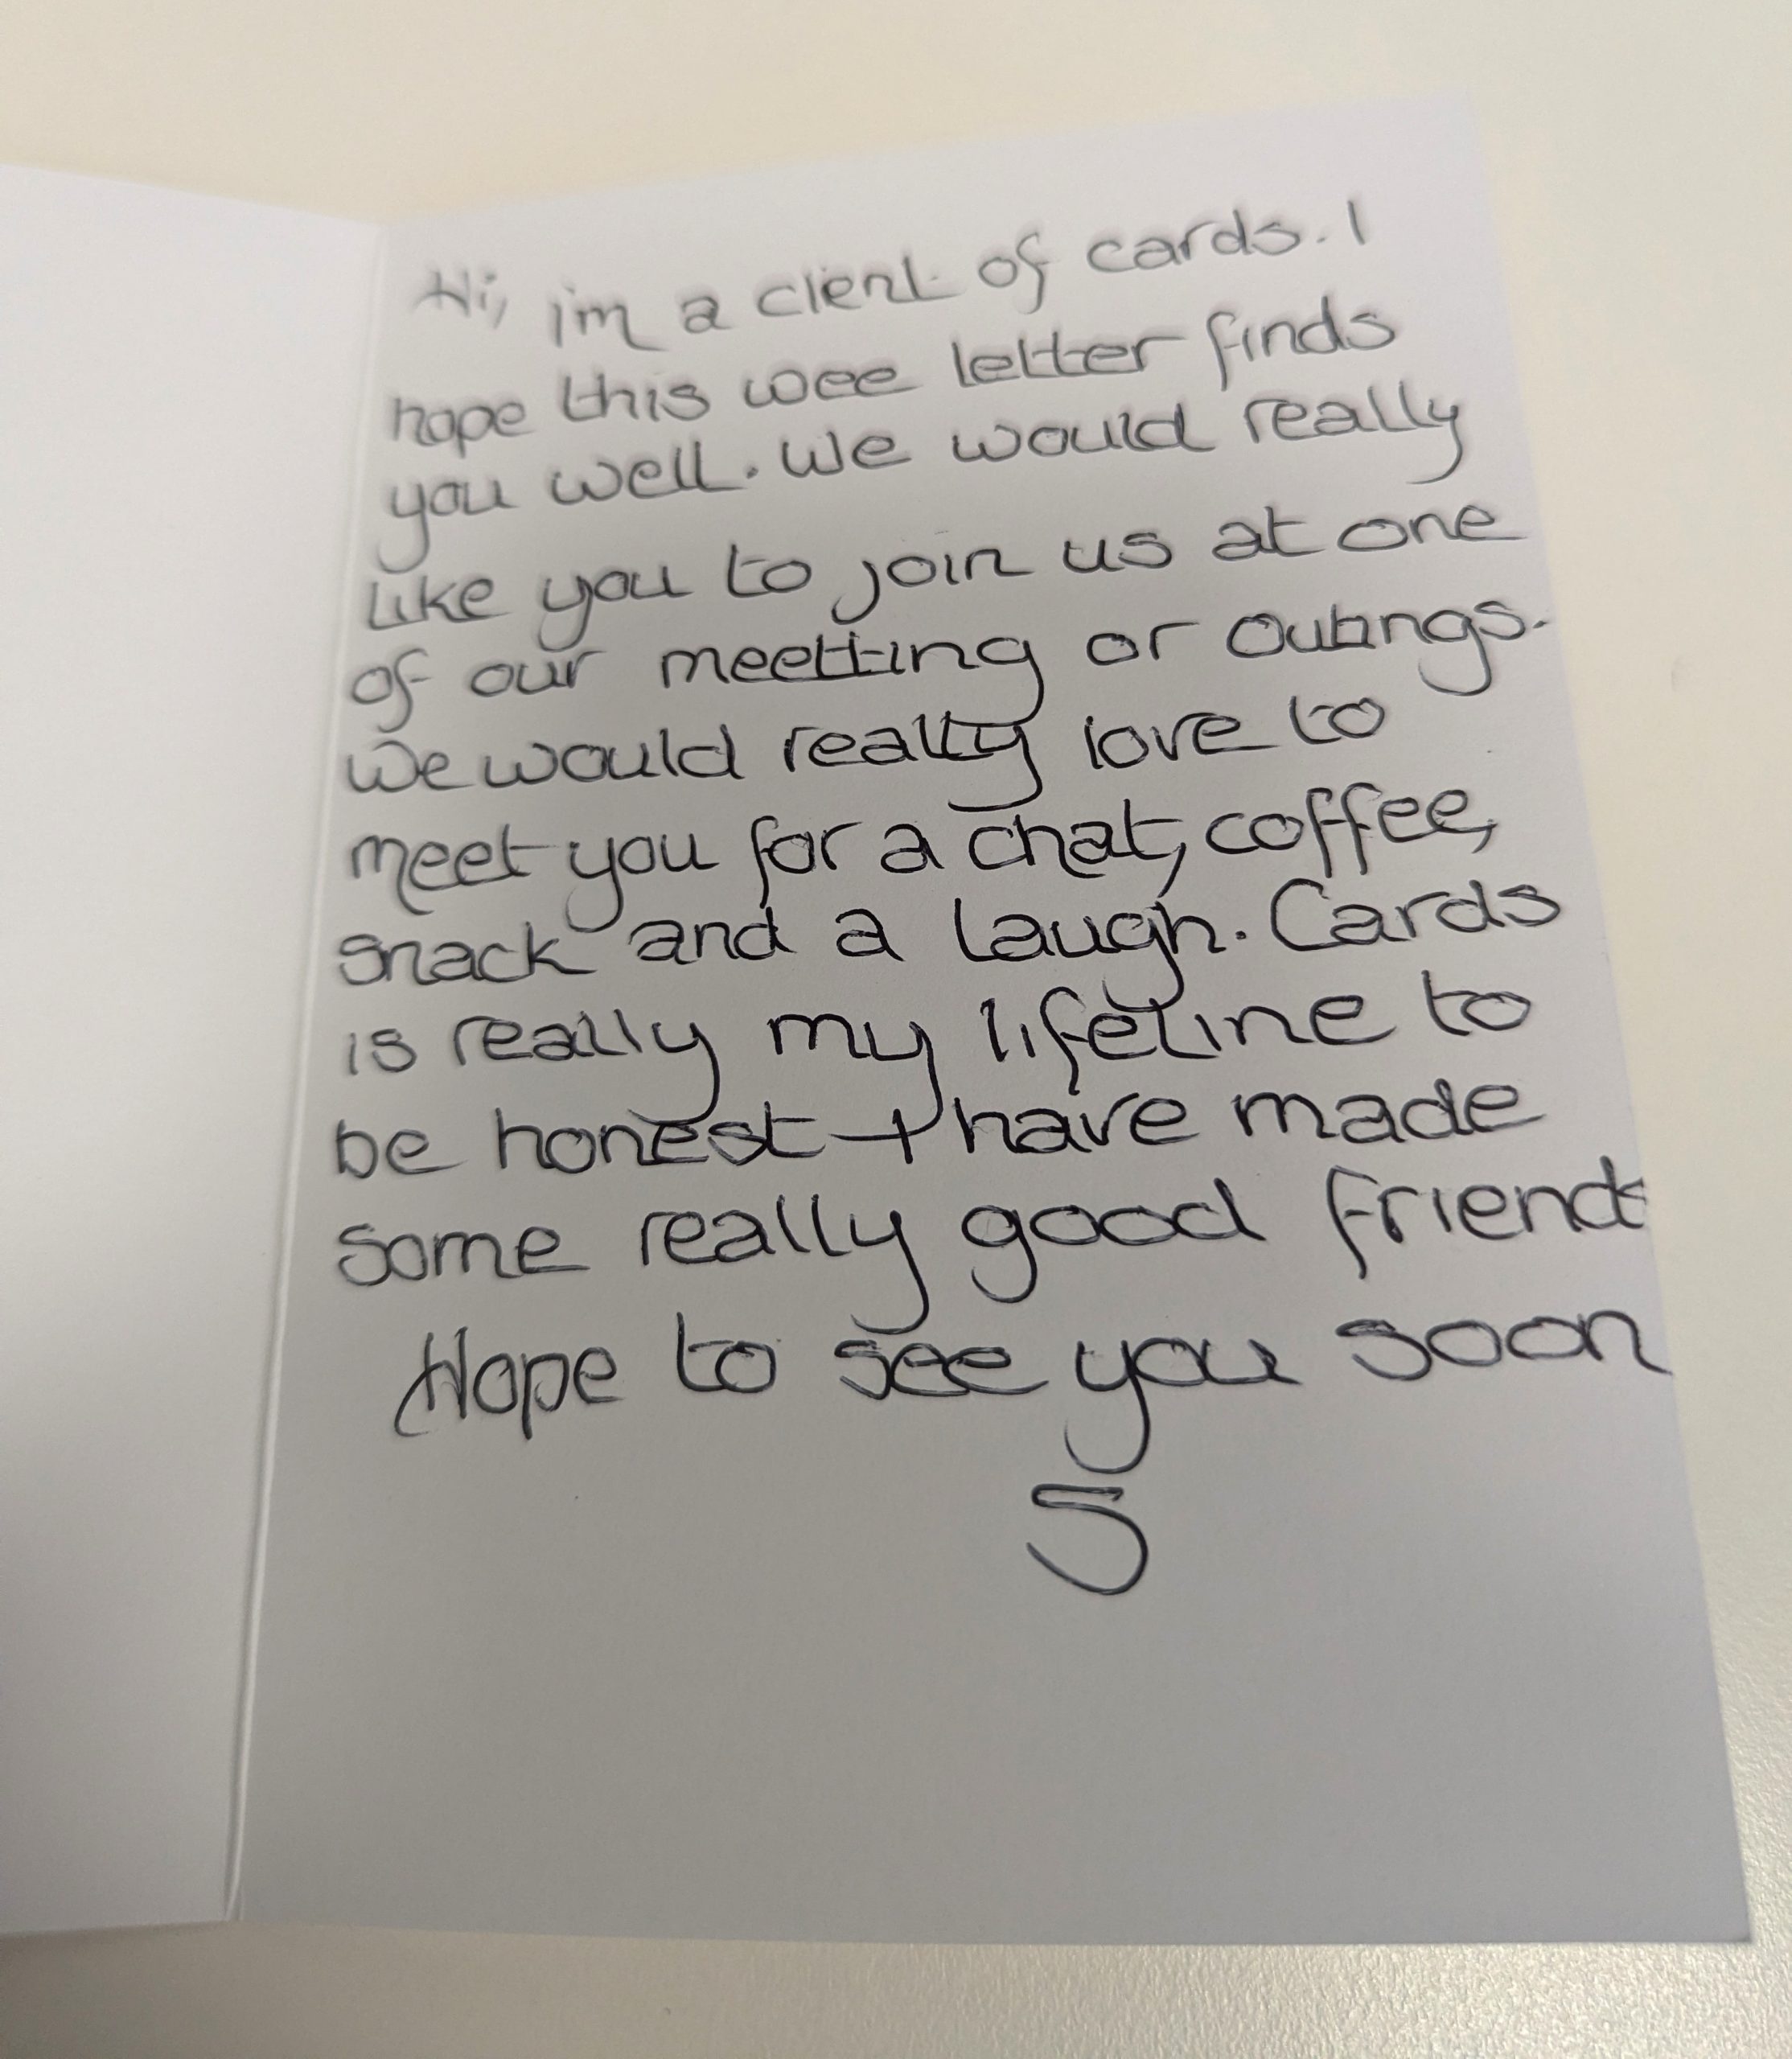 Hi, I'm a client of cards. I
hope this wee letter finds
you well. We would really
like you to join us at one
of our meetting or outings.
We would really love to
meet you for a chat, coffee,
snack and a laugh. Cards
is really my lifeline to
be honest + have made
some really good friends
Hope to see you soon
S